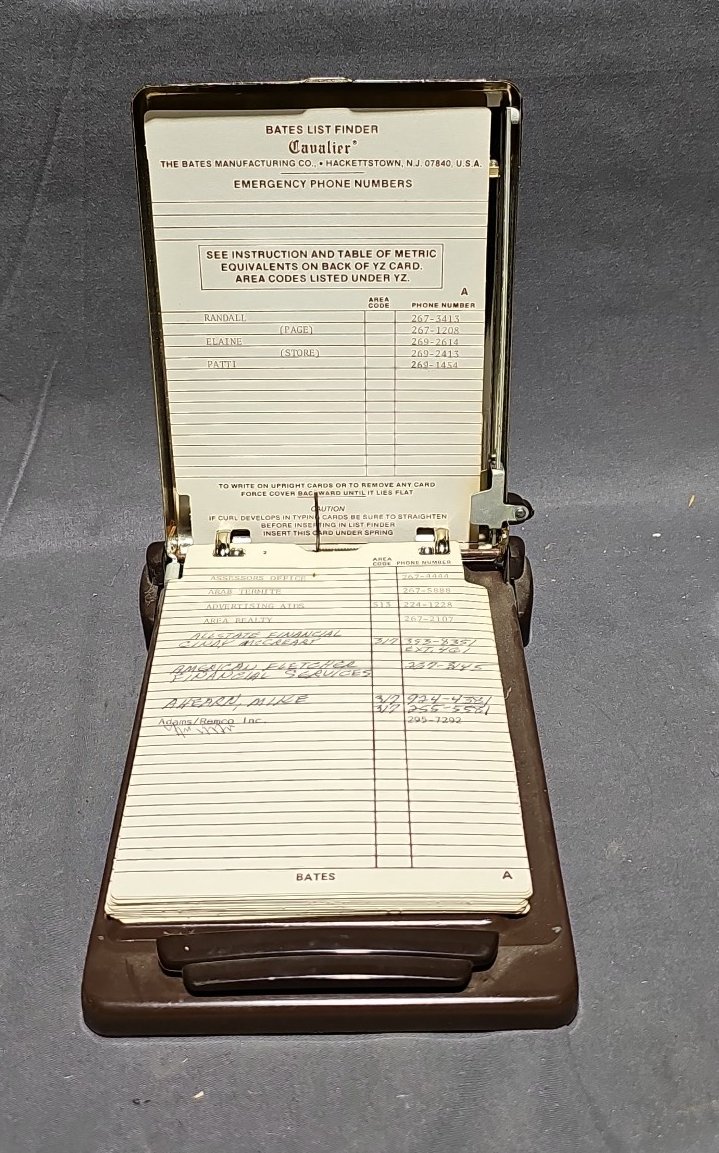 BATES LIST FINDER
Cavalier®
THE BATES MANUFACTURING CO., • HACKETTSTOWN, N.J. 07840, U.S.A.
EMERGENCY PHONE NUMBERS
SEE INSTRUCTION AND TABLE OF METRIC
EQUIVALENTS ON BACK OF YZ CARD.
AREA CODES LISTED UNDER YZ.
A
AREA CODE PHONE NUMBER
RANDALL 267-3413
(PAGE) 267-1208
ELAINE 269-2614
(STORE) 269-2413
PATTI 269-1454
TO WRITE ON UPRIGHT CARDS OR TO REMOVE ANY CARD
FORCE COVER BACKWARD UNTIL IT LIES FLAT
CAUTION
IF CURL DEVELOPS IN TYPING CARDS BE SURE TO STRAIGHTEN
BEFORE INSERTING IN LIST FINDER
INSERT THIS CARD UNDER SPRING
2
AREA CODE PHONE NUMBER
ASSESSORS OFFICE 267-4444
ARAB TERMITE 267-5888
ADVERTISING AIDS 513 224-1228
AREA REALTY 267-2107
ALLSTATE FINANCIAL
CINDY MCCREARY 317 353-8351
EXT. 461
AMERICAN FLETCHER 237-3145
FINANCIAL SERVICES
AHEARN, MIKE 317 924-4581
317 255-5581
Adams/Remco Inc. 295-7292
BATES A